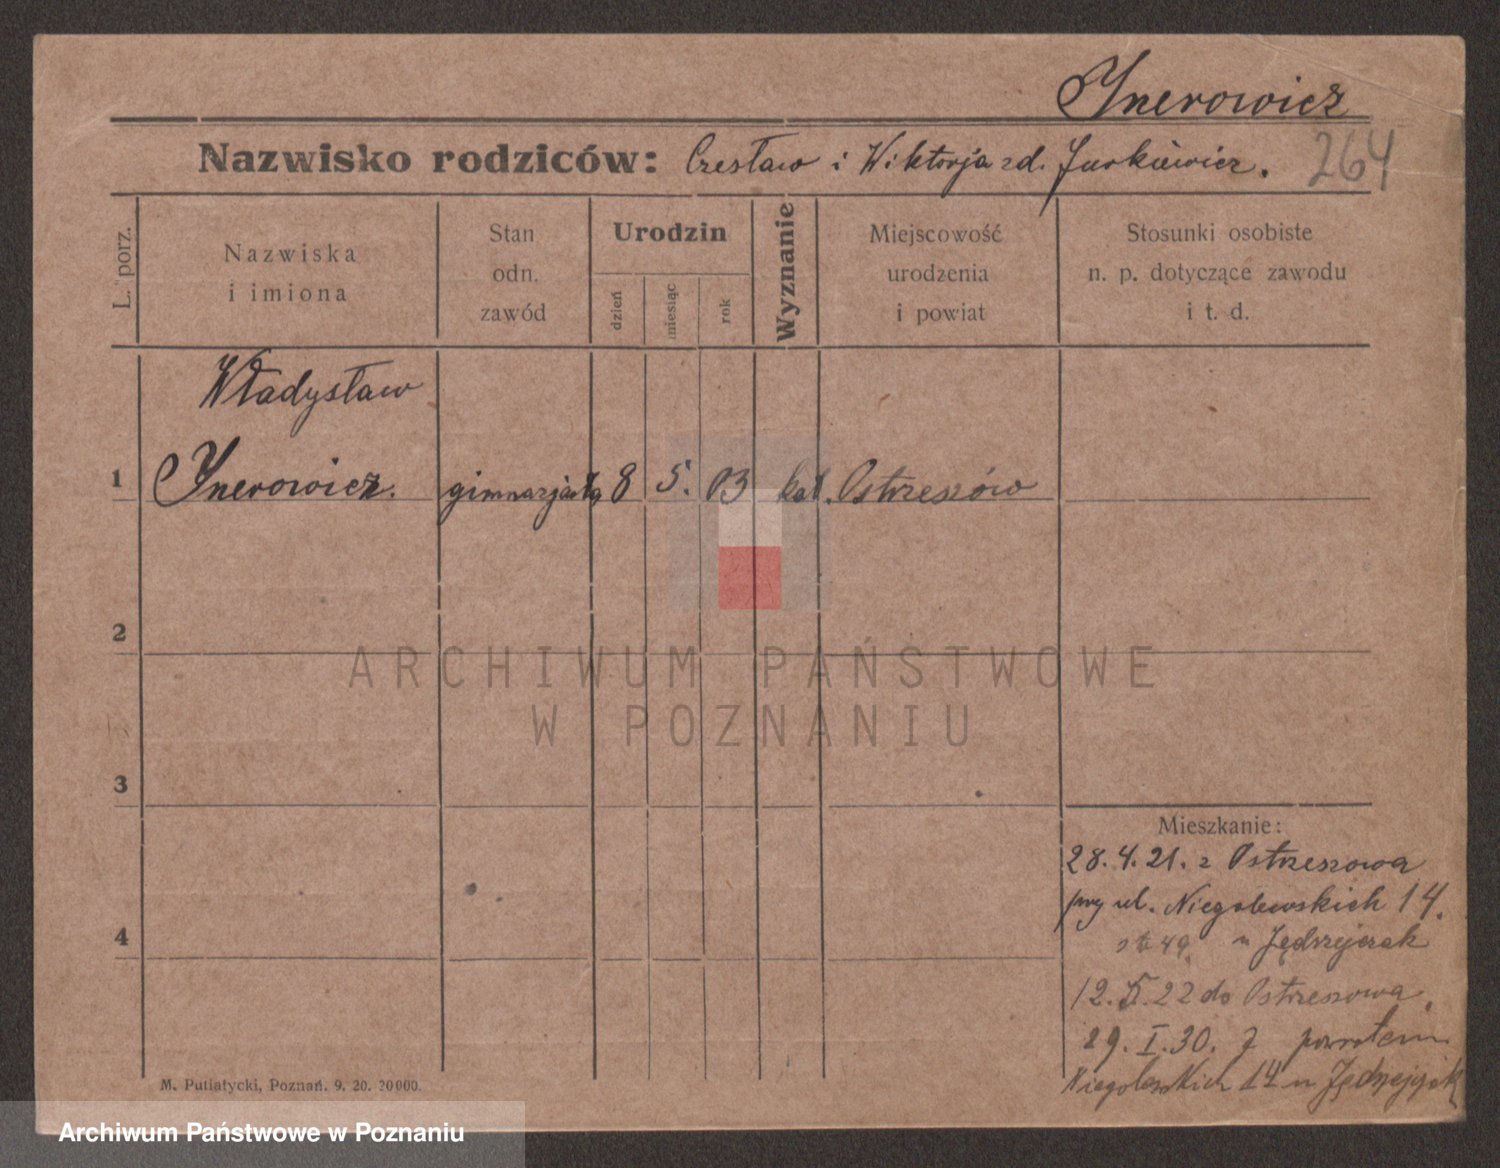 Ynerowicz
Nazwisko rodziców: Czesław i Wiktorja zd. Jurkiewicz. 264
L. porz.
Nazwiska
i imiona
Stan
odn.
zawód
Urodzin
dzień
miesiąc
rok
Wyznanie
Miejscowość
urodzenia
i powiat
Stosunki osobiste
n. p. dotyczące zawodu
i t. d.
Władysław
1 Ynerowicz. gimnazjasta 8 5. 03 kat. Ostrzeszów
2
3
4
ARCHIWUM PAŃSTWOWE
W POZNANIU
Mieszkanie:
28.4.21. z Ostrzeszowa
przy ul. Niegolewskich 14.
49 u Jędrzejczak
12. 22 do Ostrzeszowa.
29. I. 30. z powrotem
Niegolewskich 14 u Jędrzejczak
M. Putiatycki, Poznań. 9. 20. 20000.
Archiwum Państwowe w Poznaniu